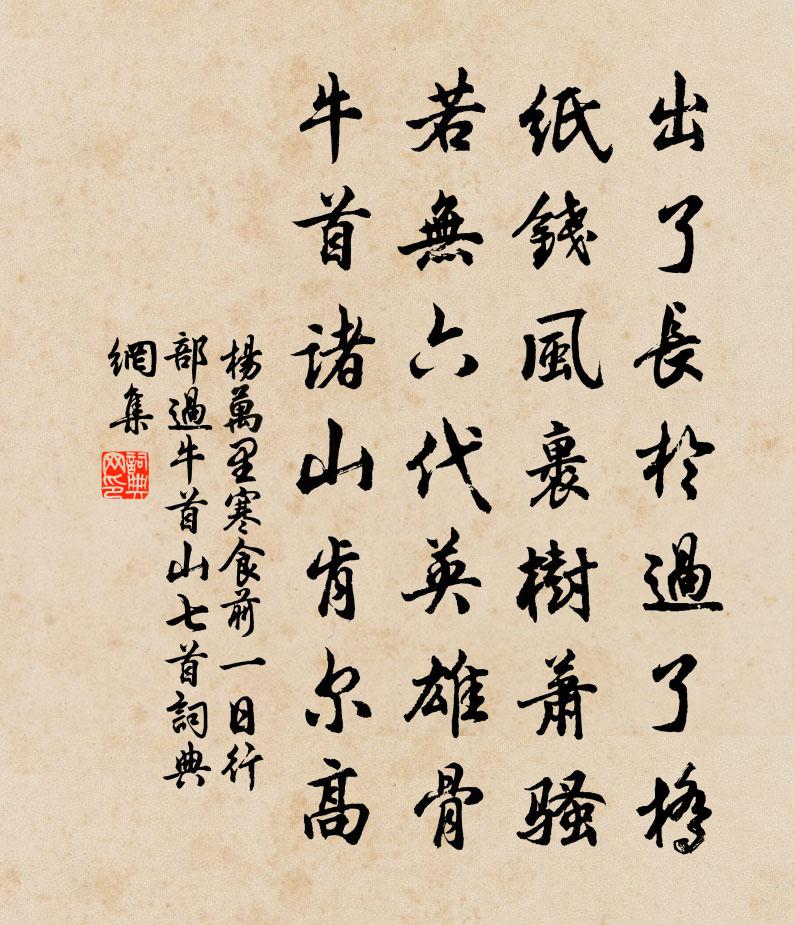 出了長於過了橋
紙錢風裏樹蕭騷
若無六代英雄骨
牛首諸山肯尔高
楊萬里寒食前一日行
部過牛首山七首詞典
網集
詞典
网印